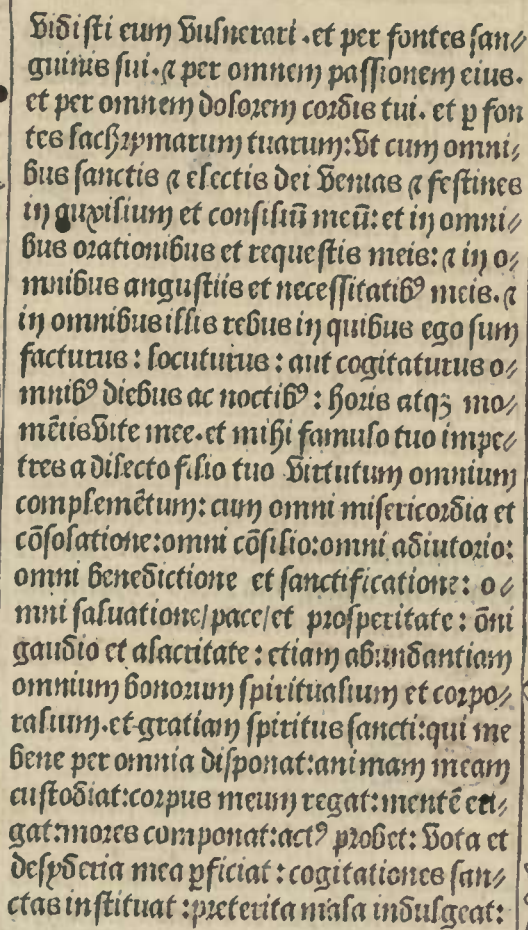 vidisti eum vulnerari .et per fontes san⸗
guinis sui. ⁊ per omnem passionem eius.
et per omnem dolorem cordis tui. et ꝑ fon
tes lachrymarum tuarum: vt cum omni⸗
bus sanctis ⁊ electis dei venias ⁊ festines
in auxilium et consiliū meū: et in omni⸗
bus orationibus et requestis meis: ⁊ in o⸗
mnibus angustiis et necessitatibꝰ meis. ⁊
in omnibus illis rebus in quibus ego sum
facturus : locuturus : aut cogitaturus o⸗
mnibꝰ diebus ac noctibꝰ : horis atqꝫ mo⸗
mētis vite mee. et mihi famulo tuo impe⸗
tres a dilecto filio tuo virtutum omnium
complemētum: cum omni misericordia et
cōsolatione: omni cōsilio: omni adiutorio:
omni benedictione et sanctificatione: o⸗
mni saluatione/ pace/ et prosperitate : ōni
gaudio et alacritate : etiam abundantiam
omnium bonorum spiritualium et corpo⸗
ralium. et gratiam spiritus sancti: qui me
bene per omnia disponat: animam meam
custodiat: corpus meum regat: mentē eri⸗
gat: mores componat: actꝰ probet: vota et
desyderia mea ꝑficiat : cogitationes san⸗
ctas instituat : preterita mala indulgeat: